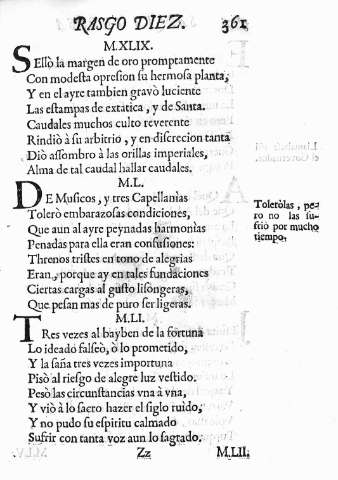 RASGO DIEZ. 361
M.XLIX.
SEllò la margen de oro promptamente
Con modesta opresion su hermosa planta,
Y en el ayre tambien gravò luciente
Las estampas de extatica, y de Santa.
Caudales muchos culto reverente
Rindiò à su arbitrio, y en discrecion tanta
Diò assombro à las orillas imperiales,
Alma de tal caudal hallar caudales.
M.L.
DE Musicos, y tres Capellanìas
Tolerò embarazosas condiciones,
Que aun al ayre peynadas harmonìas
Penadas para ella eran confusiones:
Threnos tristes en tono de alegrias
Eran, porque ay en tales fundaciones
Ciertas cargas al gusto lisongeras,
Que pesan mas de puro ser ligeras.
Toleròlas, pe-
ro no las su-
friò por mucho
tiempo.
M.LI.
TRes veces al bayben de la fortuna
Lo ideado falseò, ò lo prometido,
Y la saña tres veces importuna
Pisò al riesgo de alegre luz vestido.
Pesò las circunstancias vna à vna,
Y viò à lo sacro hazer el siglo ruido;
Y no pudo su espiritu calmado
Sufrir con tanta voz aun lo sagrado.
Zz M.LII.